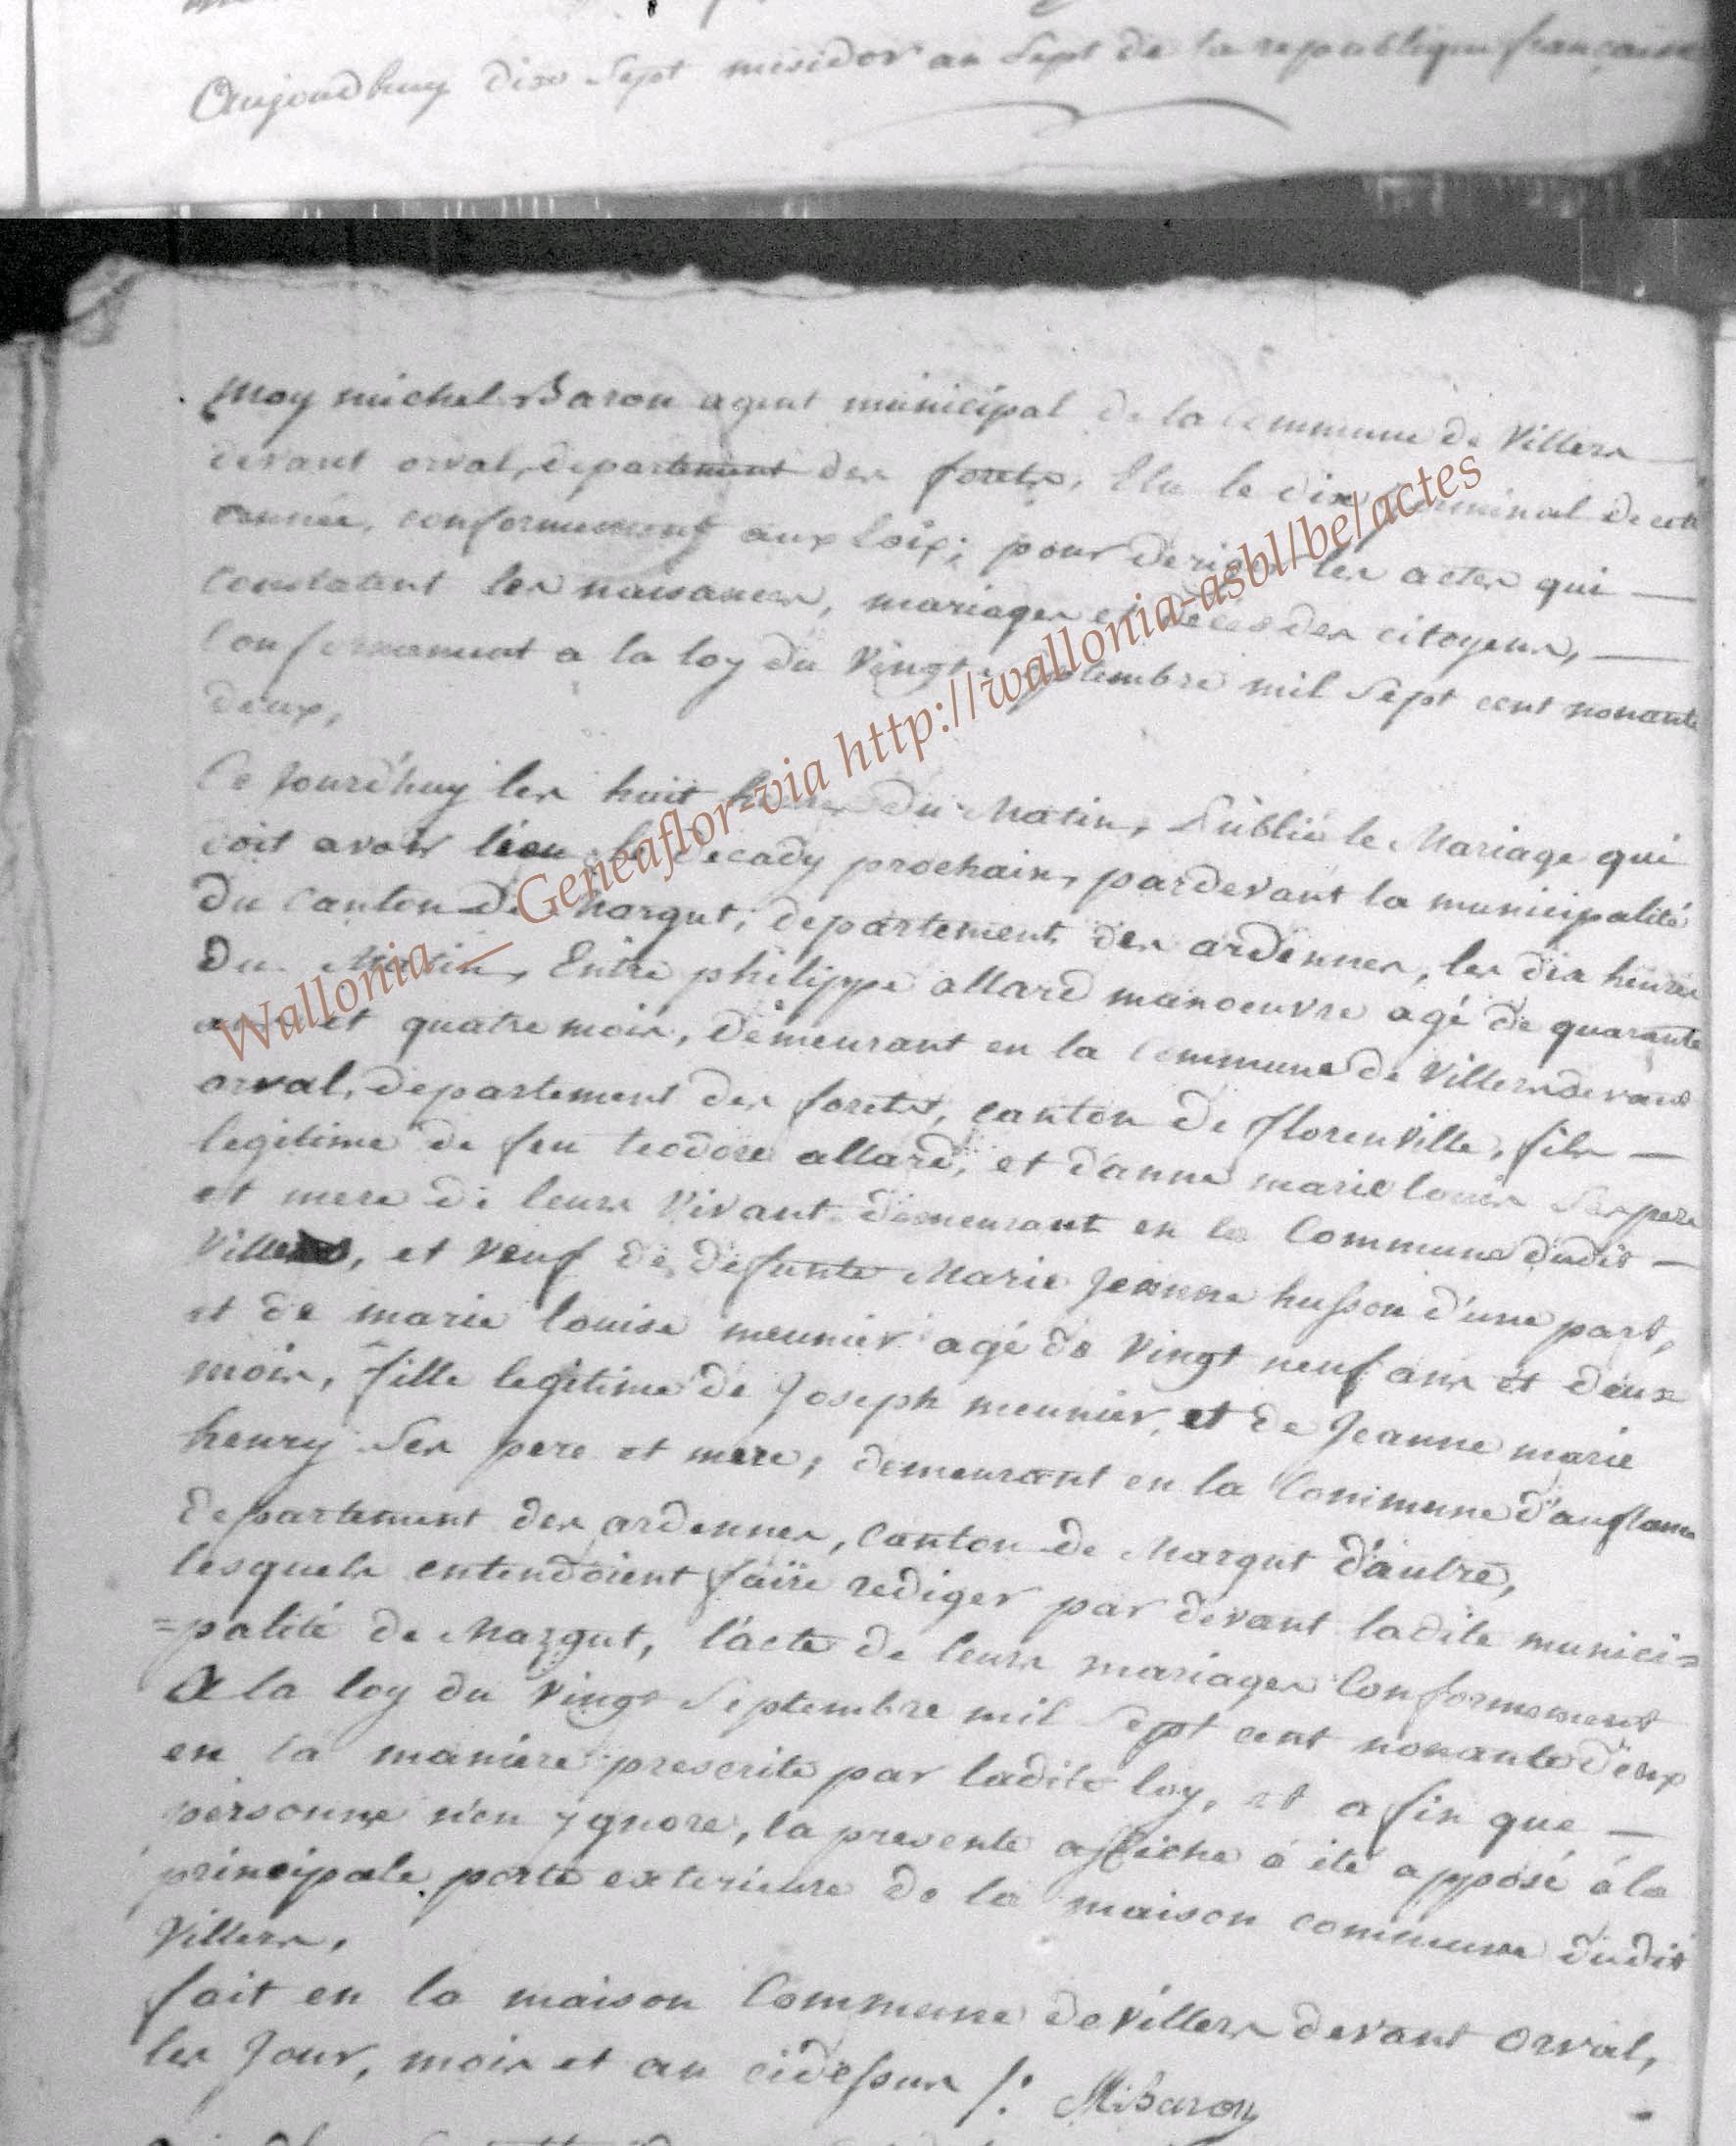 Aujourdhuy dix Sept mesidor an Sept de la republique francaise
Moy michel Baron agent municipal de la Commune de Villers
devant orval, departement des forets, Elu le dix germinal de cette
année, conformement aux loix; pour deriger les actes qui
Constatent les naisances, mariages et décès des citoyens,
Conformement a la loy du Vingt septembre mil Sept cent nonante
deux,
Ce jourd'huy les huit heures du Matin, Publié le Mariage qui
doit avoir lieu le decady prochain, pardevant la municipalité
Du Canton De Margut, departement des ardennes, les dix heures
Du Matin, Entre philippe allard manoeuvre agé de quarante
ans et quatre mois, demeurant en la Commune de Villers devant
orval, departement des forets, canton de florenville, fils
legitime de feu teodore allard, et d'anne marie louis Ses pere
et mere de leurs Vivant demeurant en la Commune dudit
Villers, et veuf de defunte Marie Jeanne husson d'une part,
et de marie louise meunier agé de Vingt neuf ans et deux
mois, fille legitime de Joseph meunier, et de Jeanne marie
henry Ses pere et mere, demeurant en la Commune d'auflance
Departement des ardennes, Canton de Margut d'autre,
lesquels entendoient faire rediger par devant ladite munici=
=palité de Margut, l'acte de leurs mariages Conformement
A la loy du Vingt Septembre mil Sept cent nonante deux
en la maniere prescrite par ladite loy, et a fin que
personne n'en ygnore, la presente affiche a été apposé à la
principale porte exterieure de la maison commune dudit
Villers,
fait en la maison Commune de Villers devant orval,
les Jour, mois et an cidessus /: M: Baron
Wallonia _ Geneaflor-via http://wallonia-asbl/be/actes